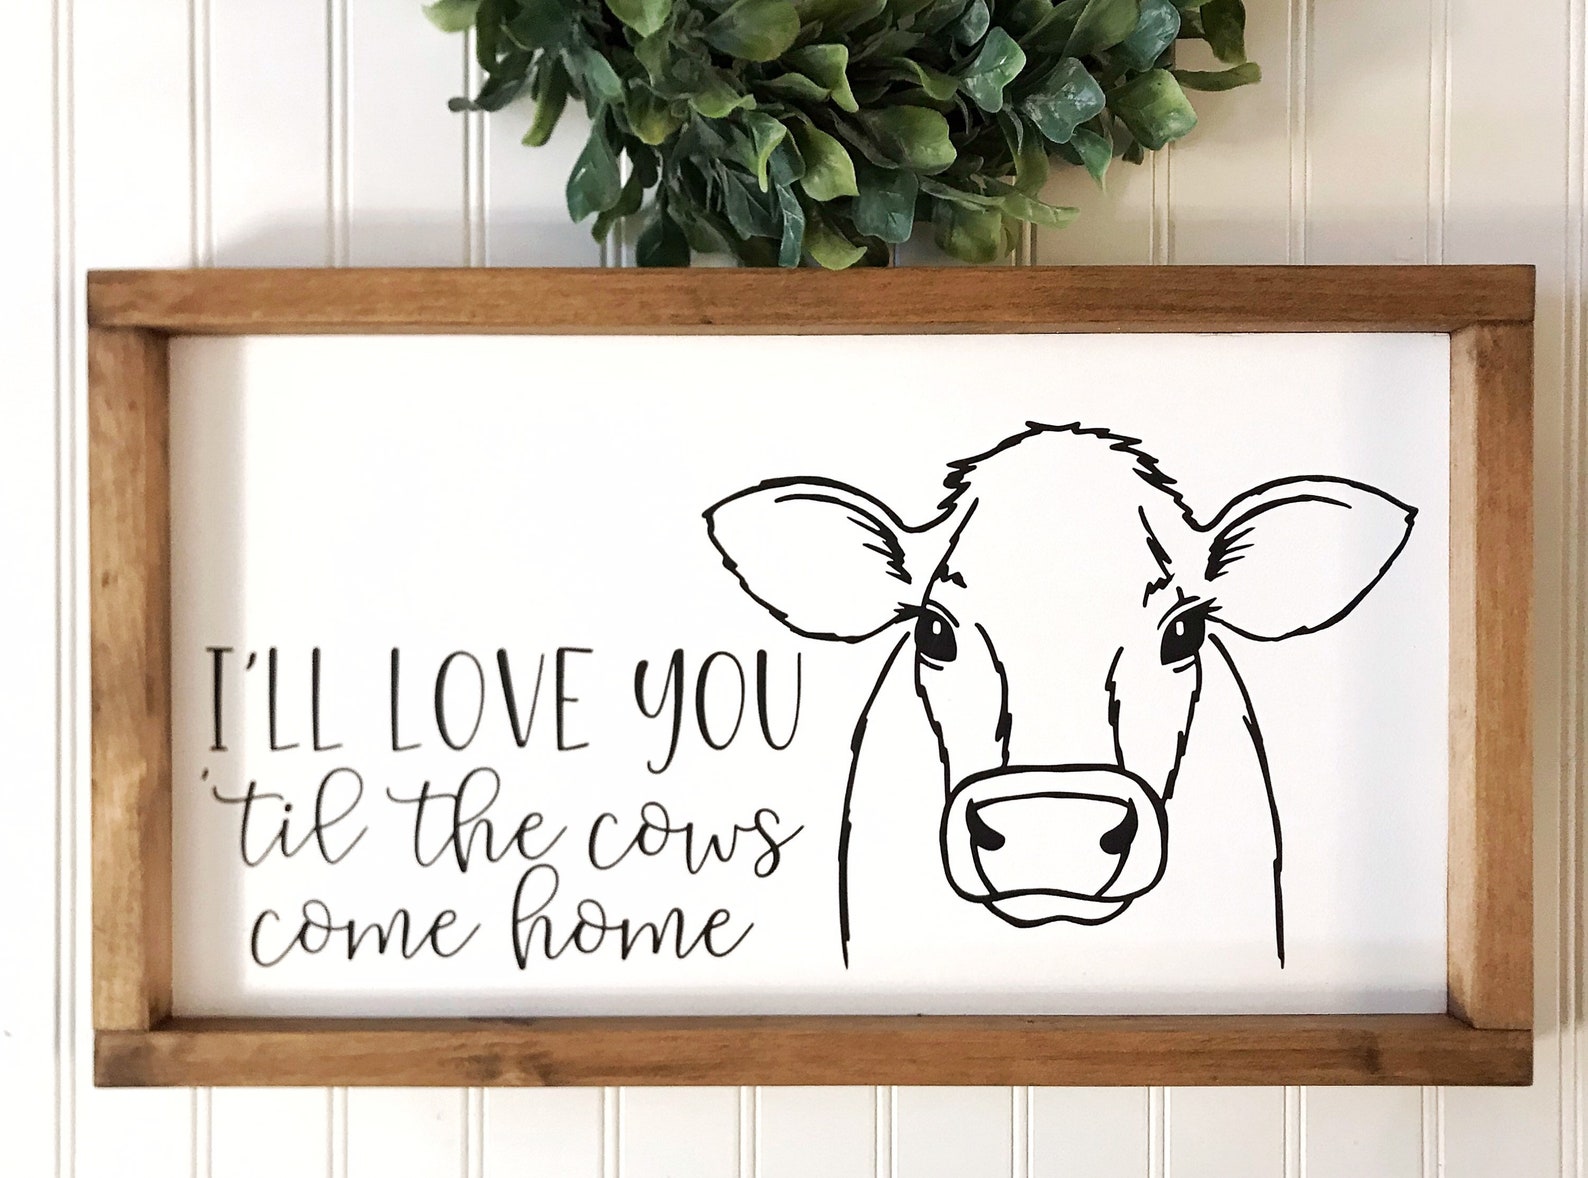 I'LL LOVE YOU
'til the cows
come home